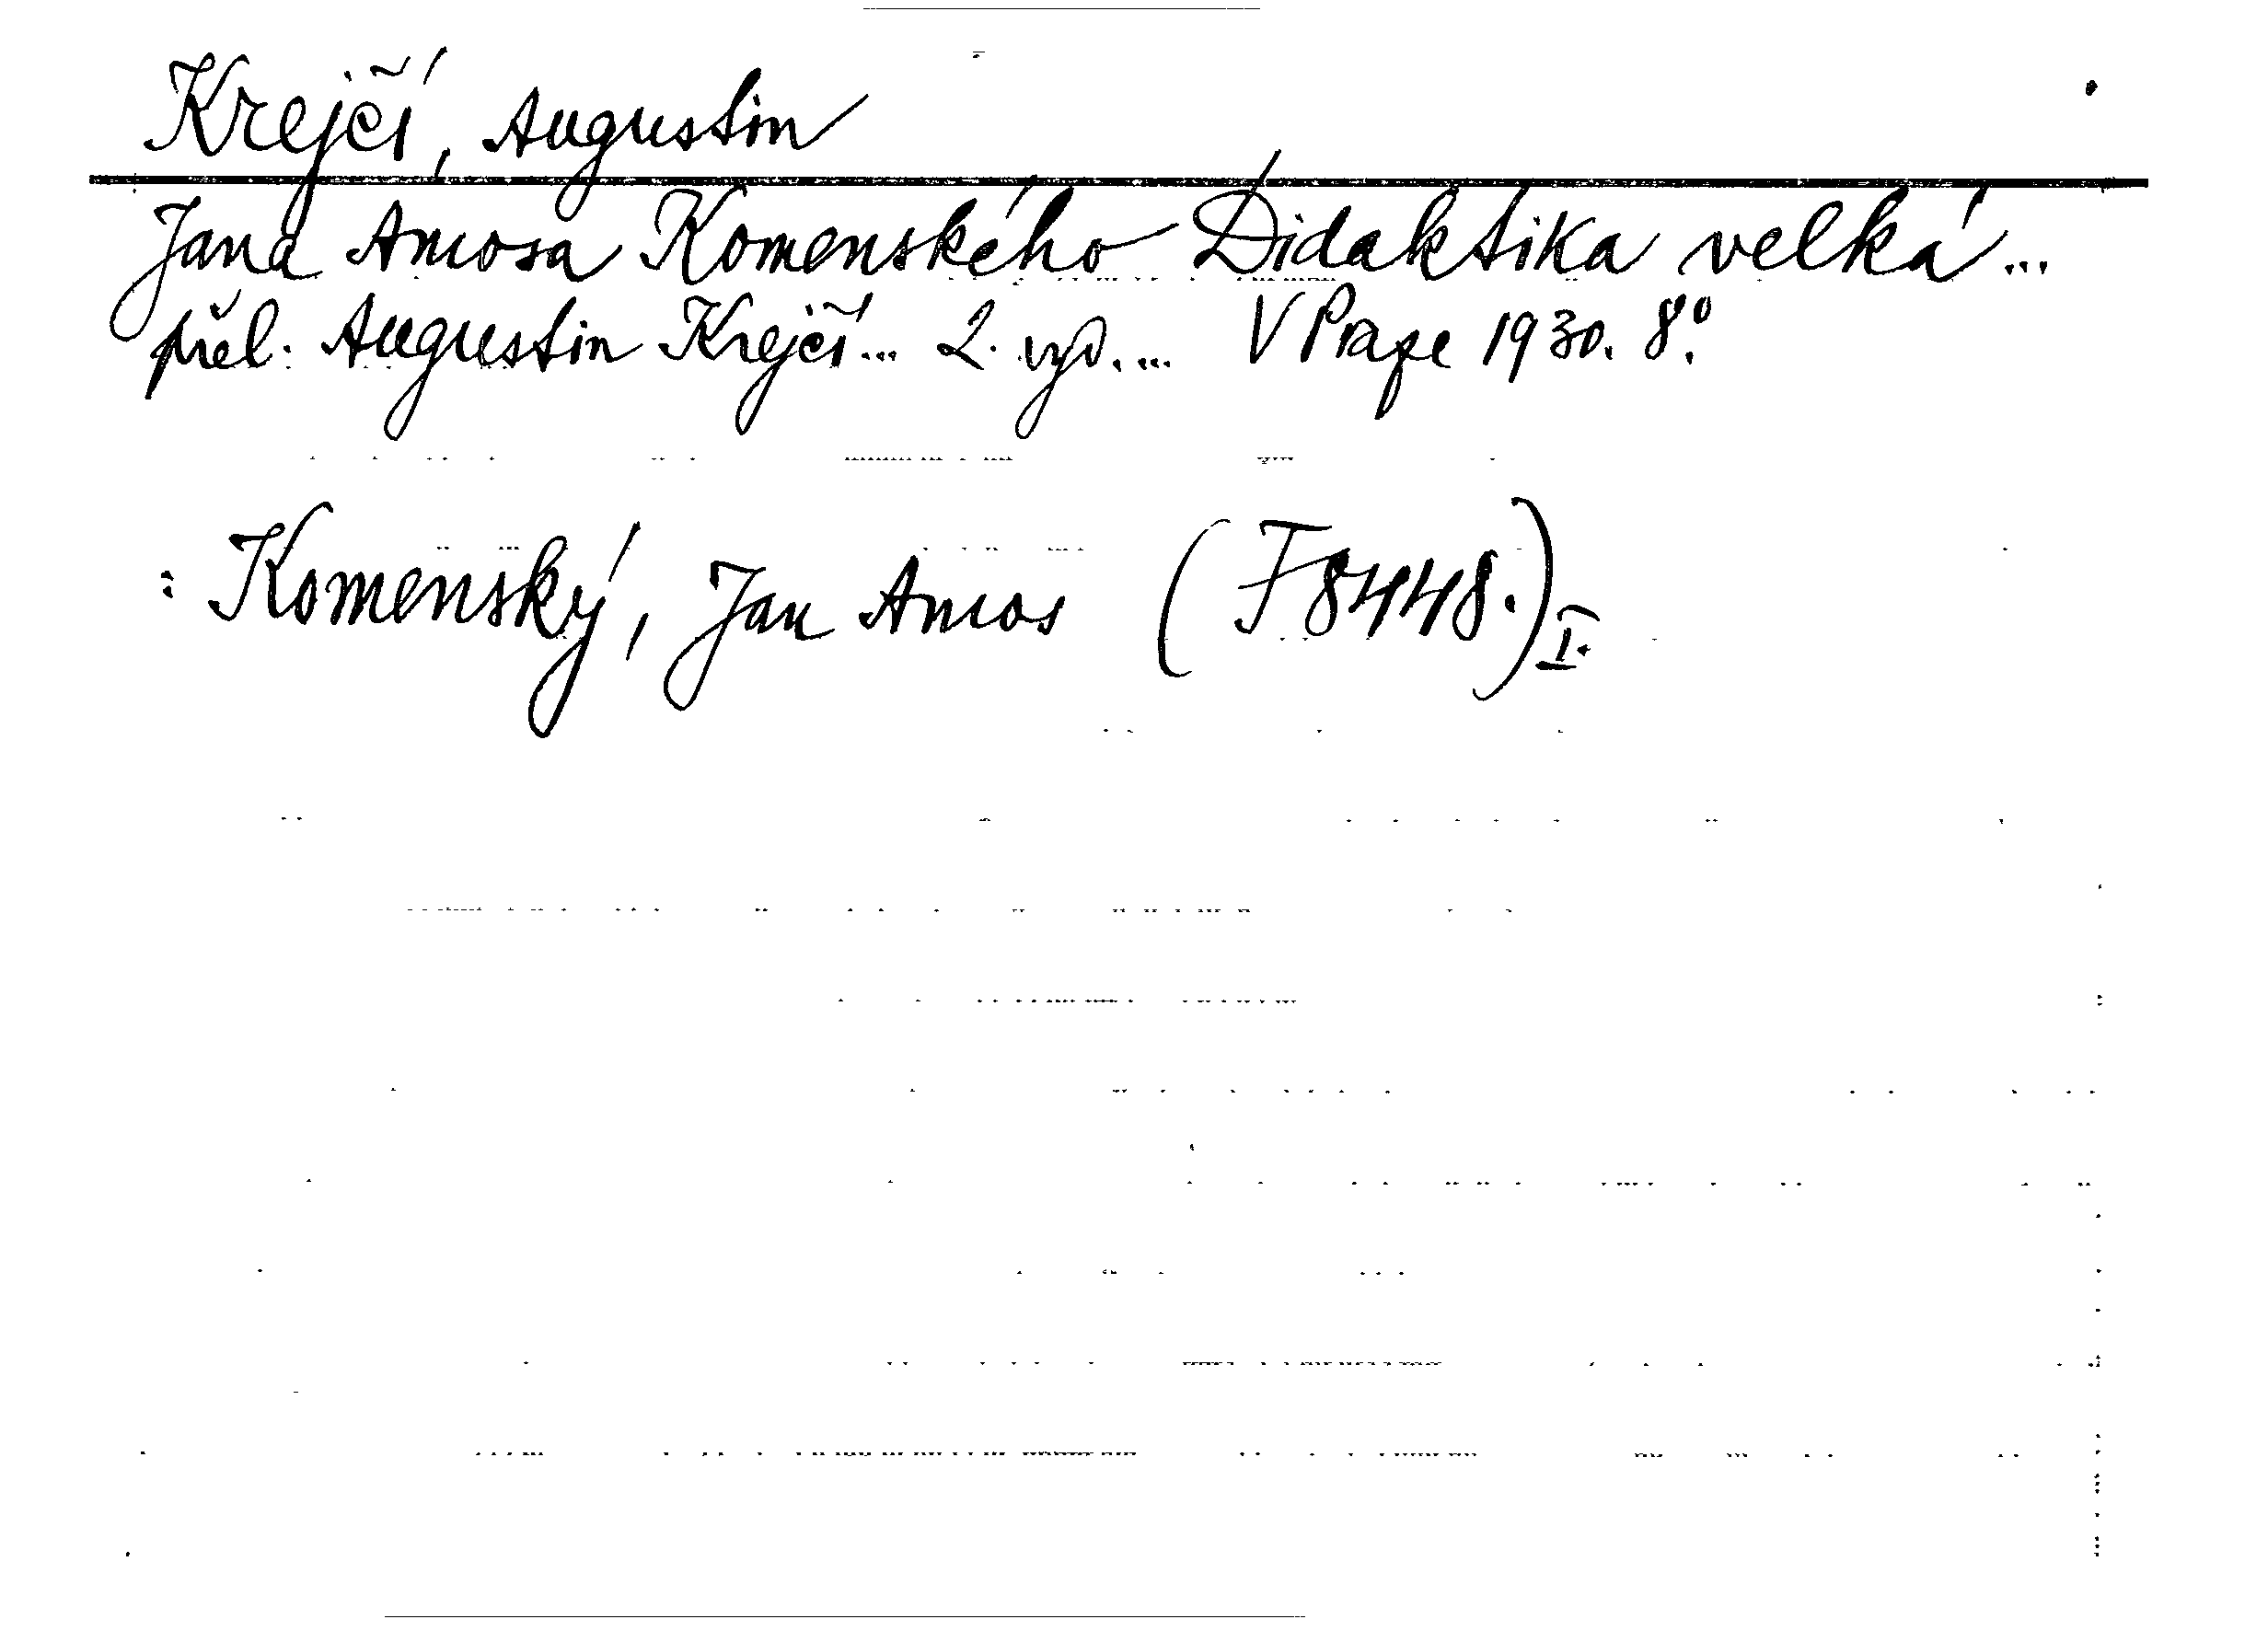 Krejčí, Augustin
Jana Amosa Komenského Didaktika velká...
přel. Augustin Krejčí... 2. vyd. ... V Praze 1930. 8°.
: Komenský, Jan Amos (F 8448.) I.